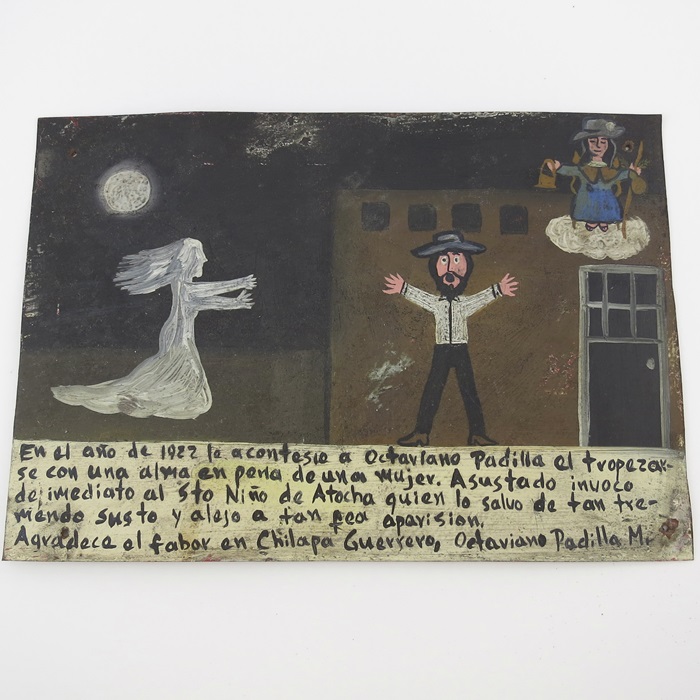 En el año de 1922 le acontesio a Octaviano Padilla el tropezar-
se con una alma en pena de una mujer. Asustado invoco
de imediato al Sto Niño de Atocha quien lo salvo de tan tre-
mendo susto y alejo a tan fea aparision.
Agradece el fabor en Chilapa Guerrero, Octaviano Padilla M.